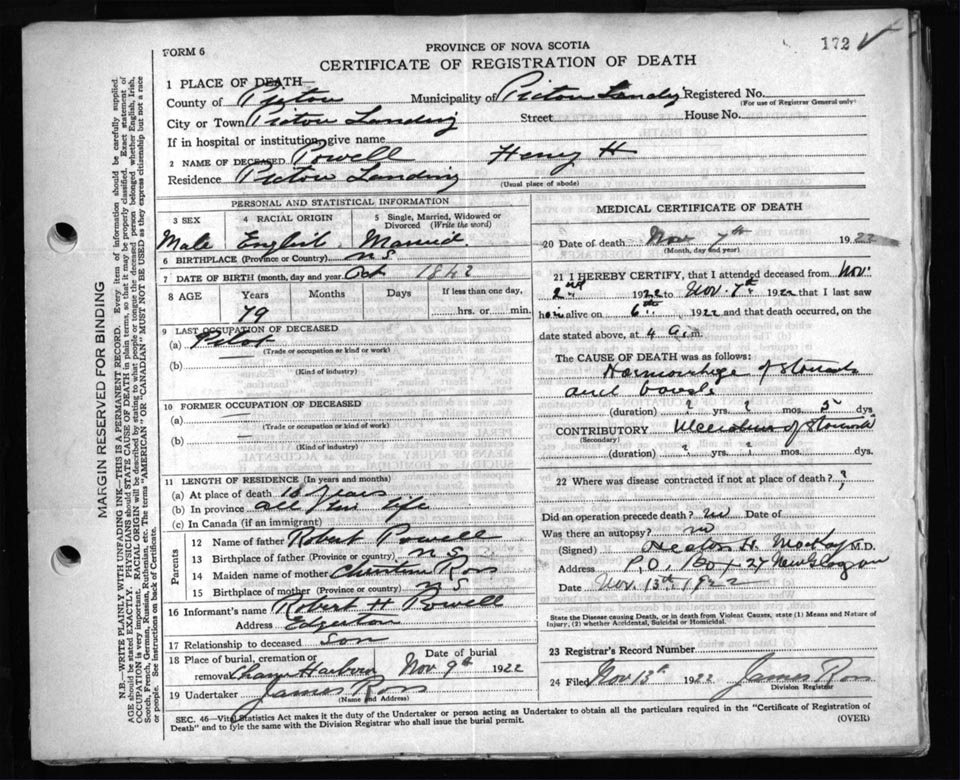 172
FORM 6
PROVINCE OF NOVA SCOTIA
CERTIFICATE OF REGISTRATION OF DEATH
1 PLACE OF DEATH—
County of Pictou Municipality of Pictou Landing Registered No.
(For use of Registrar General only)
City or Town Pictou Landing Street House No.
If in hospital or institution give name
2 NAME OF DECEASED Powell Henry H
Residence Pictou Landing
(Usual place of abode)
PERSONAL AND STATISTICAL INFORMATION
3 SEX 4 RACIAL ORIGIN 5 Single, Married, Widowed or Divorced (Write the word)
Male English Married
6 BIRTHPLACE (Province or Country) N.S.
7 DATE OF BIRTH (month, day and year) Oct 1843
8 AGE Years Months Days If less than one day,
79 hrs. or min.
9 LAST OCCUPATION OF DECEASED
(a) Pilot
(Trade or occupation or kind or work)
(b)
(Kind of industry)
10 FORMER OCCUPATION OF DECEASED
(a) —
(Trade or occupation or kind of work)
(b) —
(Kind of industry)
11 LENGTH OF RESIDENCE (In years and months)
(a) At place of death 18 years
(b) In province all his life
(c) In Canada (if an immigrant)
Parents
12 Name of father Robert Powell
13 Birthplace of father (Province or country) N.S.
14 Maiden name of mother Christina Ross
15 Birthplace of mother (Province or country) N S
16 Informant's name Robert H Powell
Address Edgerton
17 Relationship to deceased Son
18 Place of burial, cremation or removal Chance Harbour Date of burial Nov 9th 1922
19 Undertaker James Ross
(Name and Address)
MEDICAL CERTIFICATE OF DEATH
20 Date of death Nov 7th 1922
(Month, day and year)
21 I HEREBY CERTIFY, that I attended deceased from Nov.
2nd 1922 to Nov. 7th 1922 that I last saw
him alive on 6th 1922 and that death occurred, on the
date stated above, at 4 a.m.
The CAUSE OF DEATH was as follows:
Haemorrhage of stomach
and bowels
(duration) ? yrs. ? mos. 5 dys.
CONTRIBUTORY Ulceration of Stomach
(Secondary)
(duration) ? yrs. ? mos. dys.
22 Where was disease contracted if not at place of death? ?
Did an operation precede death? no Date of
Was there an autopsy? no
(Signed) H. M.D.
Address P.O. Box 27 New Glasgow
Date Nov. 13th 1922
State the Disease causing Death, or in death from Violent Causes, state (1) Means and Nature of Injury, (2) whether Accidental, Suicidal or Homicidal.
23 Registrar's Record Number
24 Filed Nov 13th 1922 James Ross
Division Registrar
SEC. 46—Vital Statistics Act makes it duty of the Undertaker or person acting as Undertaker to obtain all the particulars required in the "Certificate of Registration of
Death" and to fyle the same with the Division Registrar who shall issue the burial permit. (OVER)
MARGIN RESERVED FOR BINDING
N.B.—WRITE PLAINLY WITH UNFADING INK—THIS IS A PERMANENT RECORD. Every item of information should be carefully supplied.
AGE should be stated EXACTLY. PHYSICIANS should STATE CAUSE OF DEATH in plain terms, so that it may be properly classified. Exact statement of
OCCUPATION is very important. RACIAL ORIGIN will be described by stating to what people or tongue the deceased person belonged whether English, Irish,
Scotch, French, German, Russian, Ruthenian, etc. The terms "AMERICAN" OR "CANADIAN" MUST NOT BE USED as they express citizenship but not a race
or people. See instructions on back of Certificate.